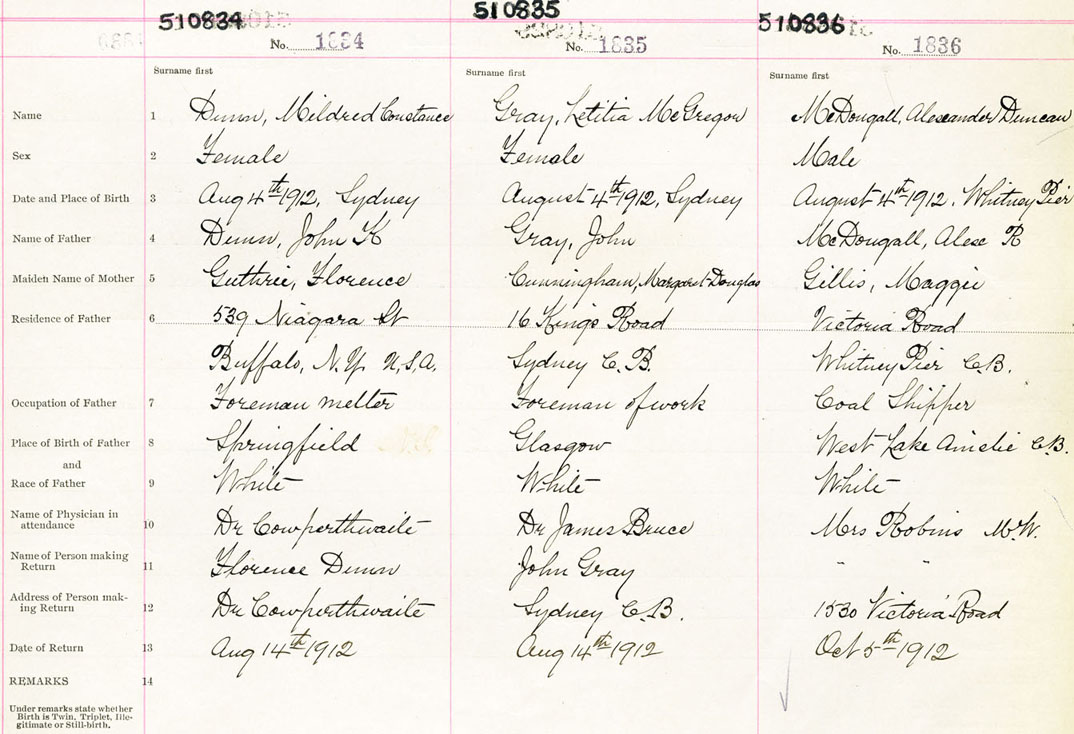 510834 510835 510836
No. 1834 No. 1835 No. 1836
Surname first Surname first Surname first
Name 1 Dunn, Mildred Constance Gray, Letitia McGregor McDougall, Alexander Duncan
Sex 2 Female Female Male
Date and Place of Birth 3 Aug 4th 1912, Sydney August 4th 1912, Sydney August 4th 1912. Whitney Pier
Name of Father 4 Dunn, John K Gray, John McDougall, Alex R
Maiden Name of Mother 5 Guthrie, Florence Cunningham, Margaret Douglas Gillis, Maggie
Residence of Father 6 539 Niagara St 16 Kings Road Victoria Road
Buffalo, N.Y. U.S.A. Sydney C.B. Whitney Pier C.B.
Occupation of Father 7 Foreman melter Foreman of work Coal Shipper
Place of Birth of Father 8 Springfield Glasgow West Lake Ainslie C.B.
and
Race of Father 9 White White White
Name of Physician in
attendance 10 Dr Cowperthwaite Dr James Bruce Mrs Robins M.W.
Name of Person making
Return 11 Florence Dunn John Gray " "
Address of Person mak-
ing Return 12 Dr Cowperthwaite Sydney C.B. 1530 Victoria Road
Date of Return 13 Aug 14th 1912 Aug 14th 1912 Oct 5th 1912
REMARKS 14
Under remarks state whether
Birth is Twin, Triplet, Ille-
gitimate or Still-birth.